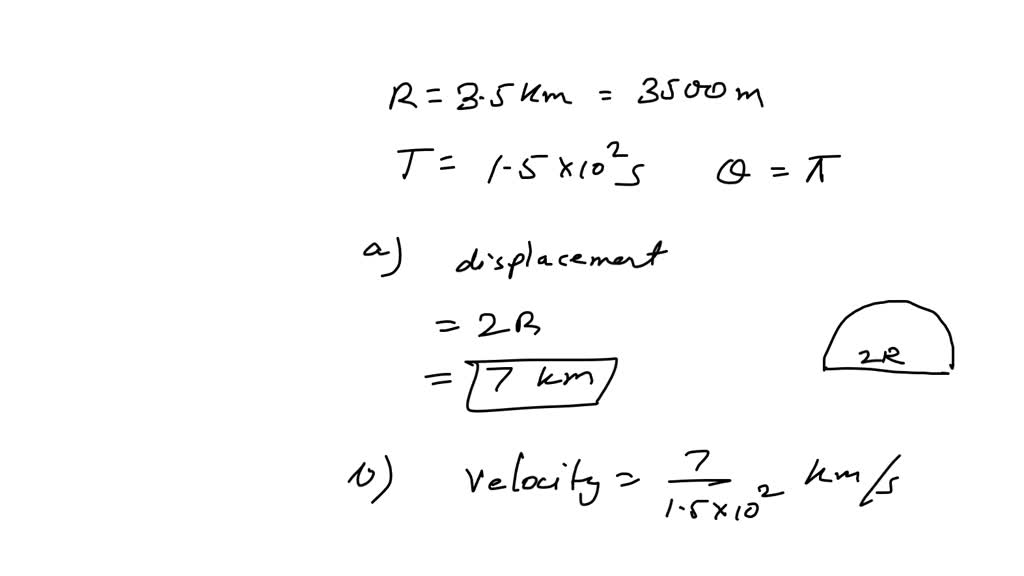 R = 3.5 Km = 3500 m
T = 1.5 × 10² s θ = π
a) displacement
= 2R
2R
= 7 km
b) velocity = 7 / 1.5 × 10² km/s